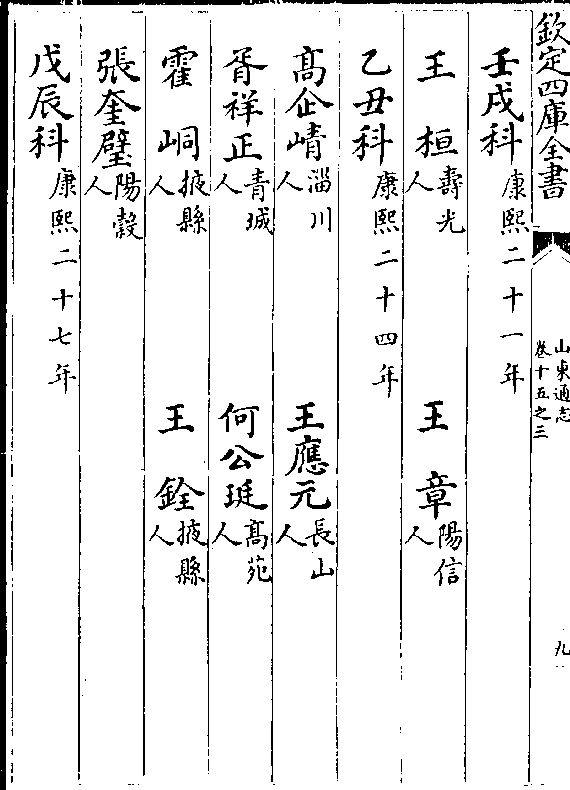 欽定四庫全書
山東通志
卷十五之三
九
壬戌科康熙二十一年
王桓壽光人
王章陽信人
乙丑科康熙二十四年
高企崝淄川人
王應元長山人
胥祥正青城人
何公珽髙苑人
霍峒掖縣人
王銓掖縣人
張奎璧陽穀人
戊辰科康熙二十七年